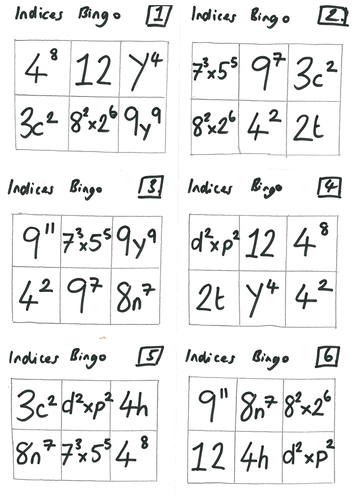 Indices Bingo 1
4⁸ 12 y⁴
3c² 8²×2⁶ 9y⁹
Indices Bingo 2
7³×5⁵ 9⁷ 3c²
8²×2⁶ 4² 2t
Indices Bingo 3
9¹¹ 7³×5⁵ 9y⁹
4² 9⁷ 8n⁷
Indices Bingo 4
d²×p² 12 4⁸
2t y⁴ 4²
Indices Bingo 5
3c² d²×p² 4h
8n⁷ 7³×5⁵ 4⁸
Indices Bingo 6
9¹¹ 8n⁷ 8²×2⁶
12 4h d²×p²